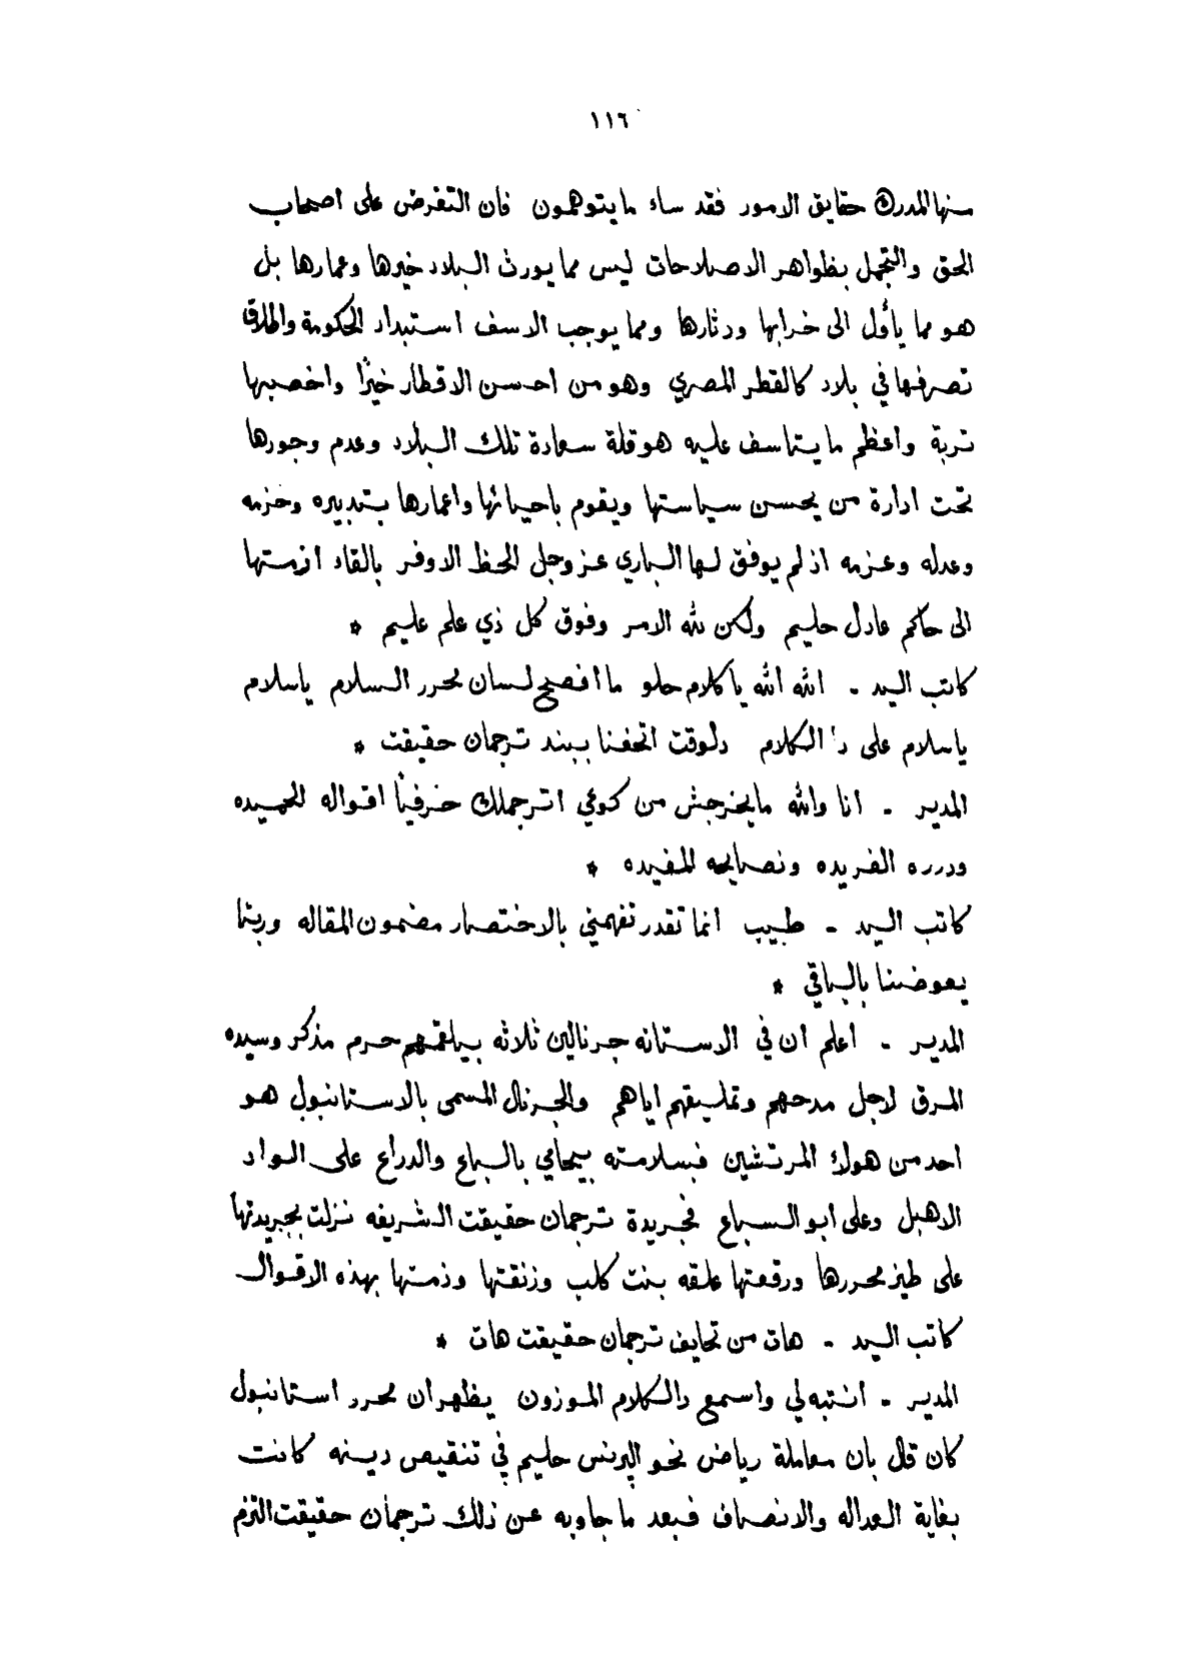 ١١٦
منها المدرك حقايق الامور فقد ساء ما يتوهمون فان التغرض على اصحاب
الحق والتجمل بظواهر الاصلاحات ليس مما يورث البلاد خيرها وعمارها بل
هو مما يأول الى خرابها ودثارها ومما يوجب الاسف استبداد الحكومة واطلاق
تصرفها في بلاد كالقطر المصري وهو من احسن الاقطار خيرًا واخصبها
تربة واعظم ما يتاسف عليه هو قلة سعادة تلك البلاد وعدم وجورها
تحت ادارة من يحسن سياستها ويقوم باحيائها واعمارها بتدبيره وحزمه
وعدله وعزمه اذ لم يوفق لها الباري عز وجل الحظ الاوفر بالقاء ازمتها
الى حاكم عادل حليم ولكن لله الامر وفوق كل ذي علم عليم *
كاتب اليد - الله الله ياكلام حلو ما افصح لسان محرر السلام ياسلام
ياسلام على دا الكلام دلوقت اتحفنا ببند ترجمان حقيقت *
المدير - انا والله مايخرجش من كوعي اترجملك حرفيًا اقواله الحميده
ودرره الفريده ونصايحه المفيده *
كاتب اليد - طيب انما تقدر تفهمني بالاختصار مضمون المقاله وربنا
يعوضنا بالباقي *
المدير - اعلم ان في الاستانه جرنالين ثلاثه بيلقمهم حرم مذكر وسيده
المرق لاجل مدحهم وتمليقهم اياهم والجرنال المسمى بالاستانبول هو
احد من هولاء المرتشين فبسلامته بيحامي بالباع والدراع على الواد
الاهبل وعلى ابو السباع فجريدة ترجمان حقيقت الشريفه نزلت بجريدتها
على طيز محررها ورقعتها علقه بنت كلب وزنقتها وذمتها بهذه الاقوال
كاتب اليد - هات من تحايف ترجمان حقيقت هات *
المدير - انتبه لي واسمع دالكلام الموزون يظهر ان محرر استانبول
كان قال بان معاملة رياض نحو البرنس حليم في تنقيص دينه كانت
بغاية العداله والانصاف فبعد ما جاوبه عن ذلك ترجمان حقيقت التزم